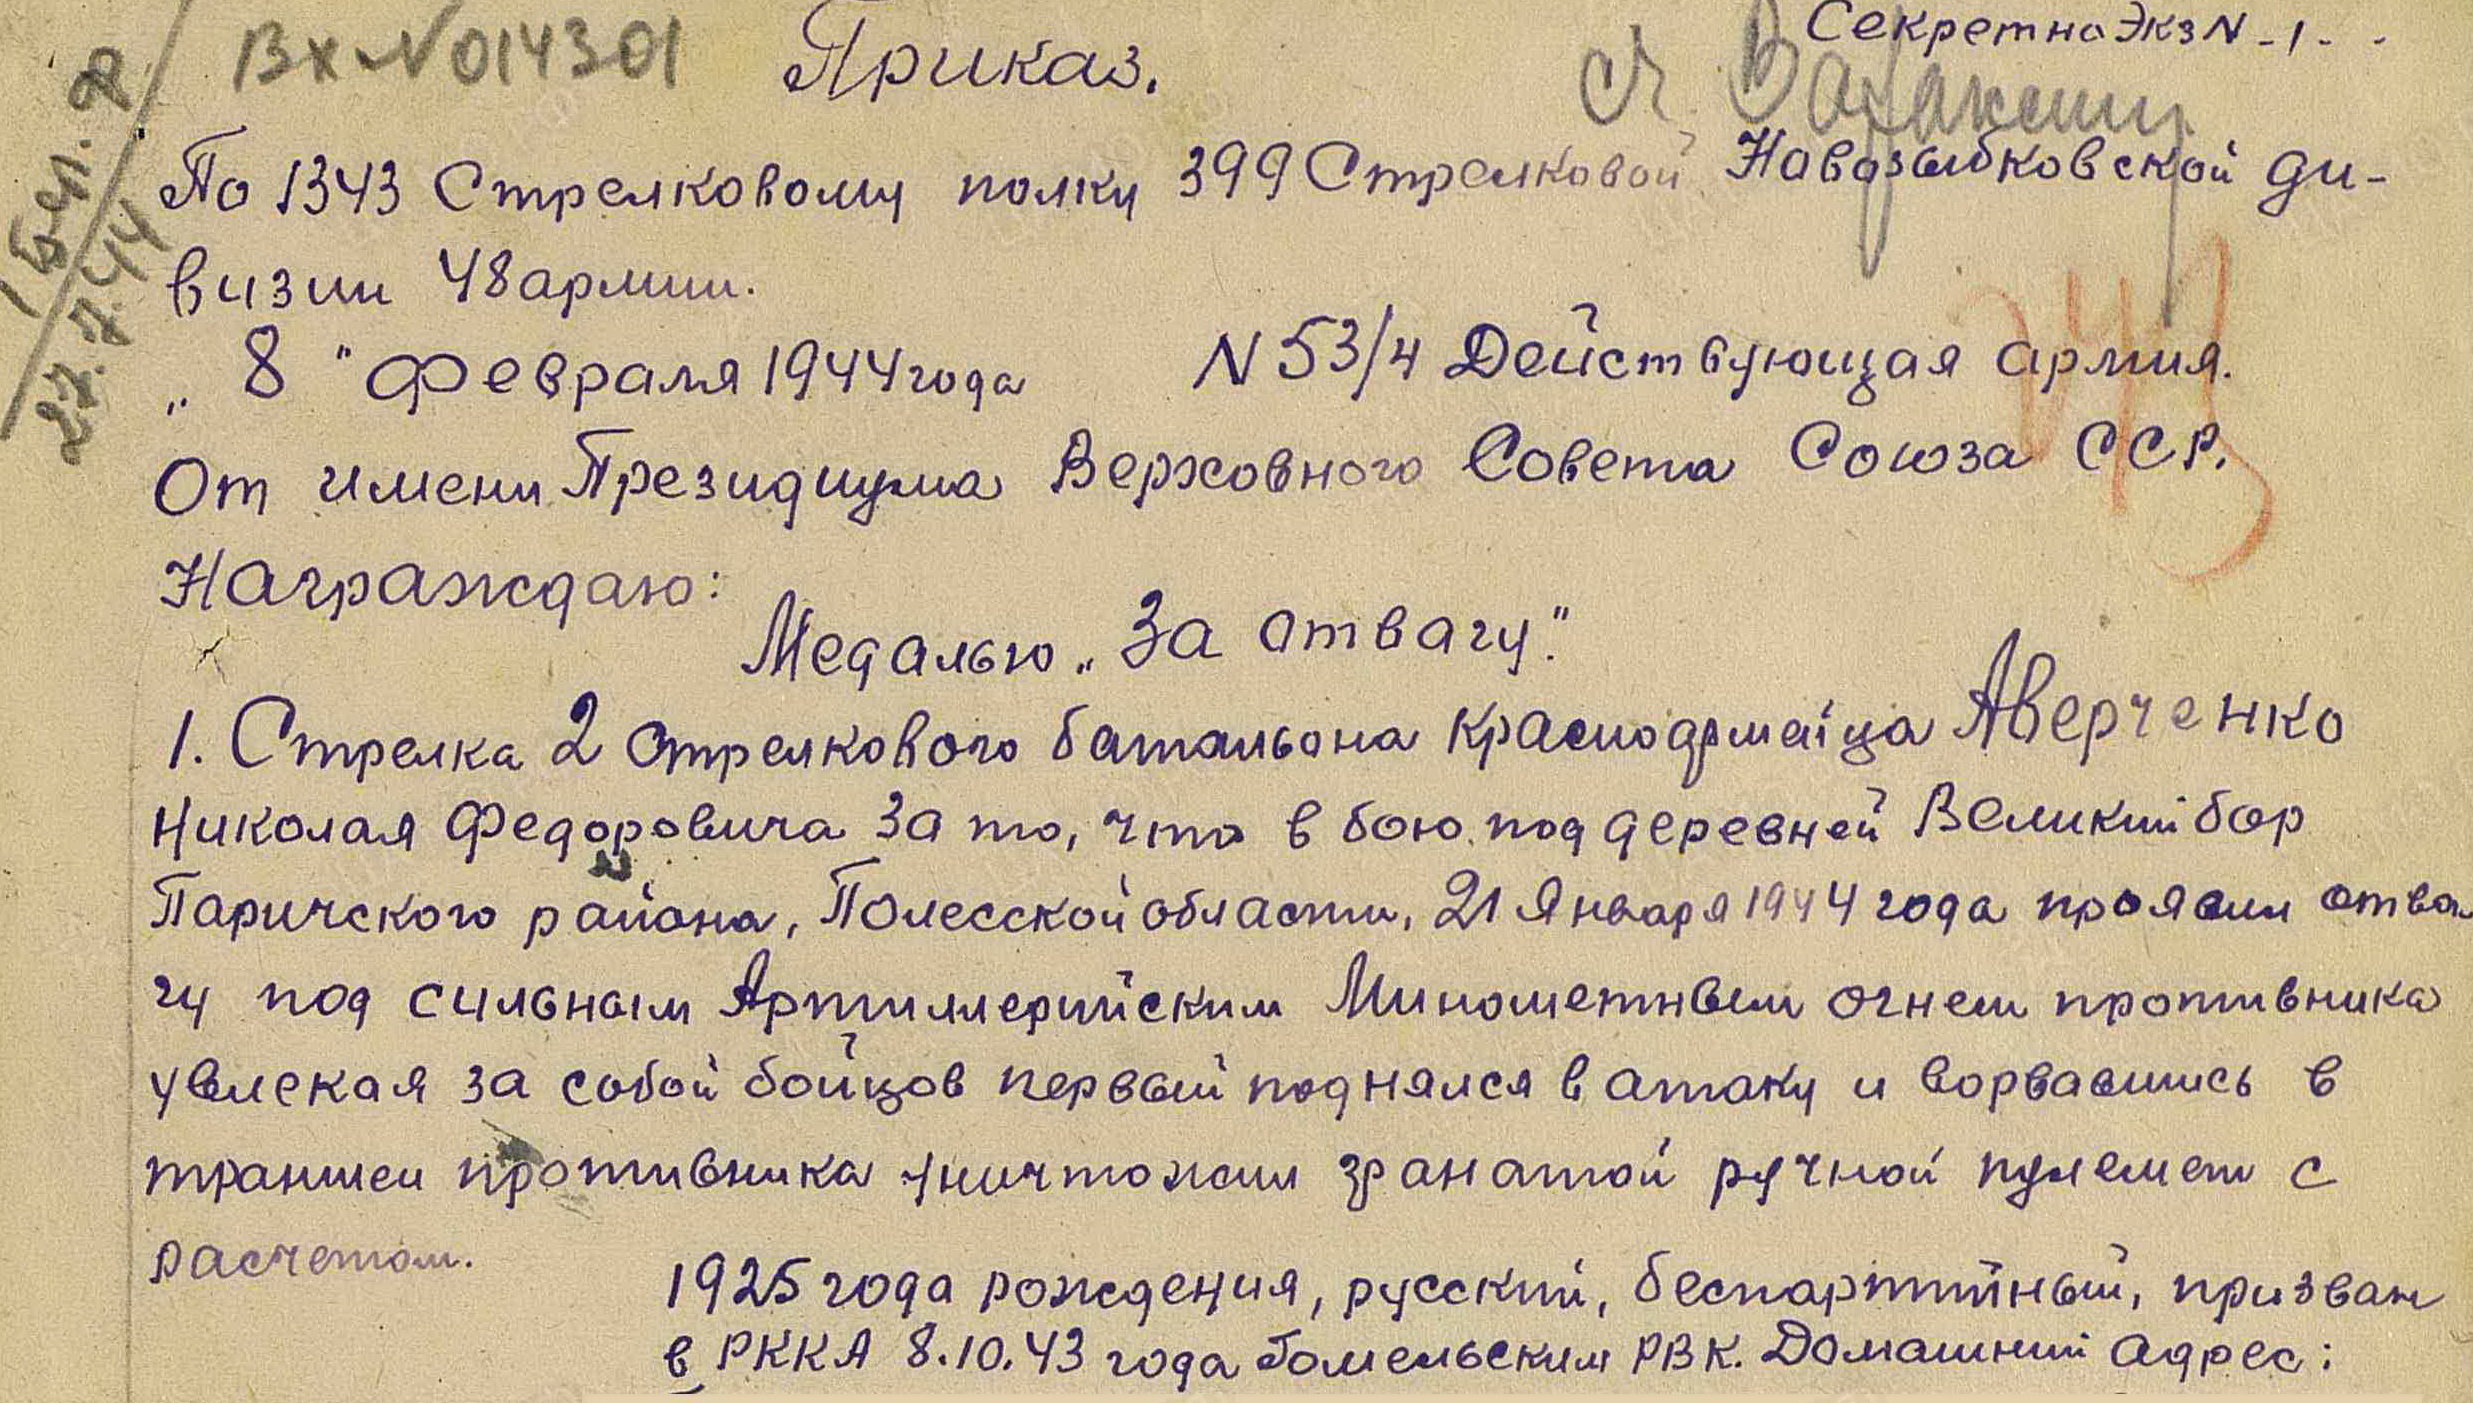 Секретно Экз N-1-
Вх N 014301
Приказ.
27.7.44
По 1343 Стрелковому полку 399 Стрелковой Новозыбковской ди-
визии 48 армии.
„ 8 " Февраля 1944 года N 53/4 Действующая армия.
От имени Президиума Верховного Совета Союза ССР.
Награждаю:
Медалью „За отвагу".
1. Стрелка 2 стрелкового батальона красноармейца Аверченко
Николая Федоровича за то, что в бою под деревней Великий бор
Паричского района, Полесской области, 21 Января 1944 года проявил отва
гу под сильным Артиллерийским Минометным огнем противника
увлекая за собой бойцов первый поднялся в атаку и ворвавшись в
траншеи противника уничтожил гранатой ручной пулемет с
расчетом.
1925 года рождения, русский, беспартийный, призван
в РККА 8.10.43 года Гомельским РВК. Домашний адрес: